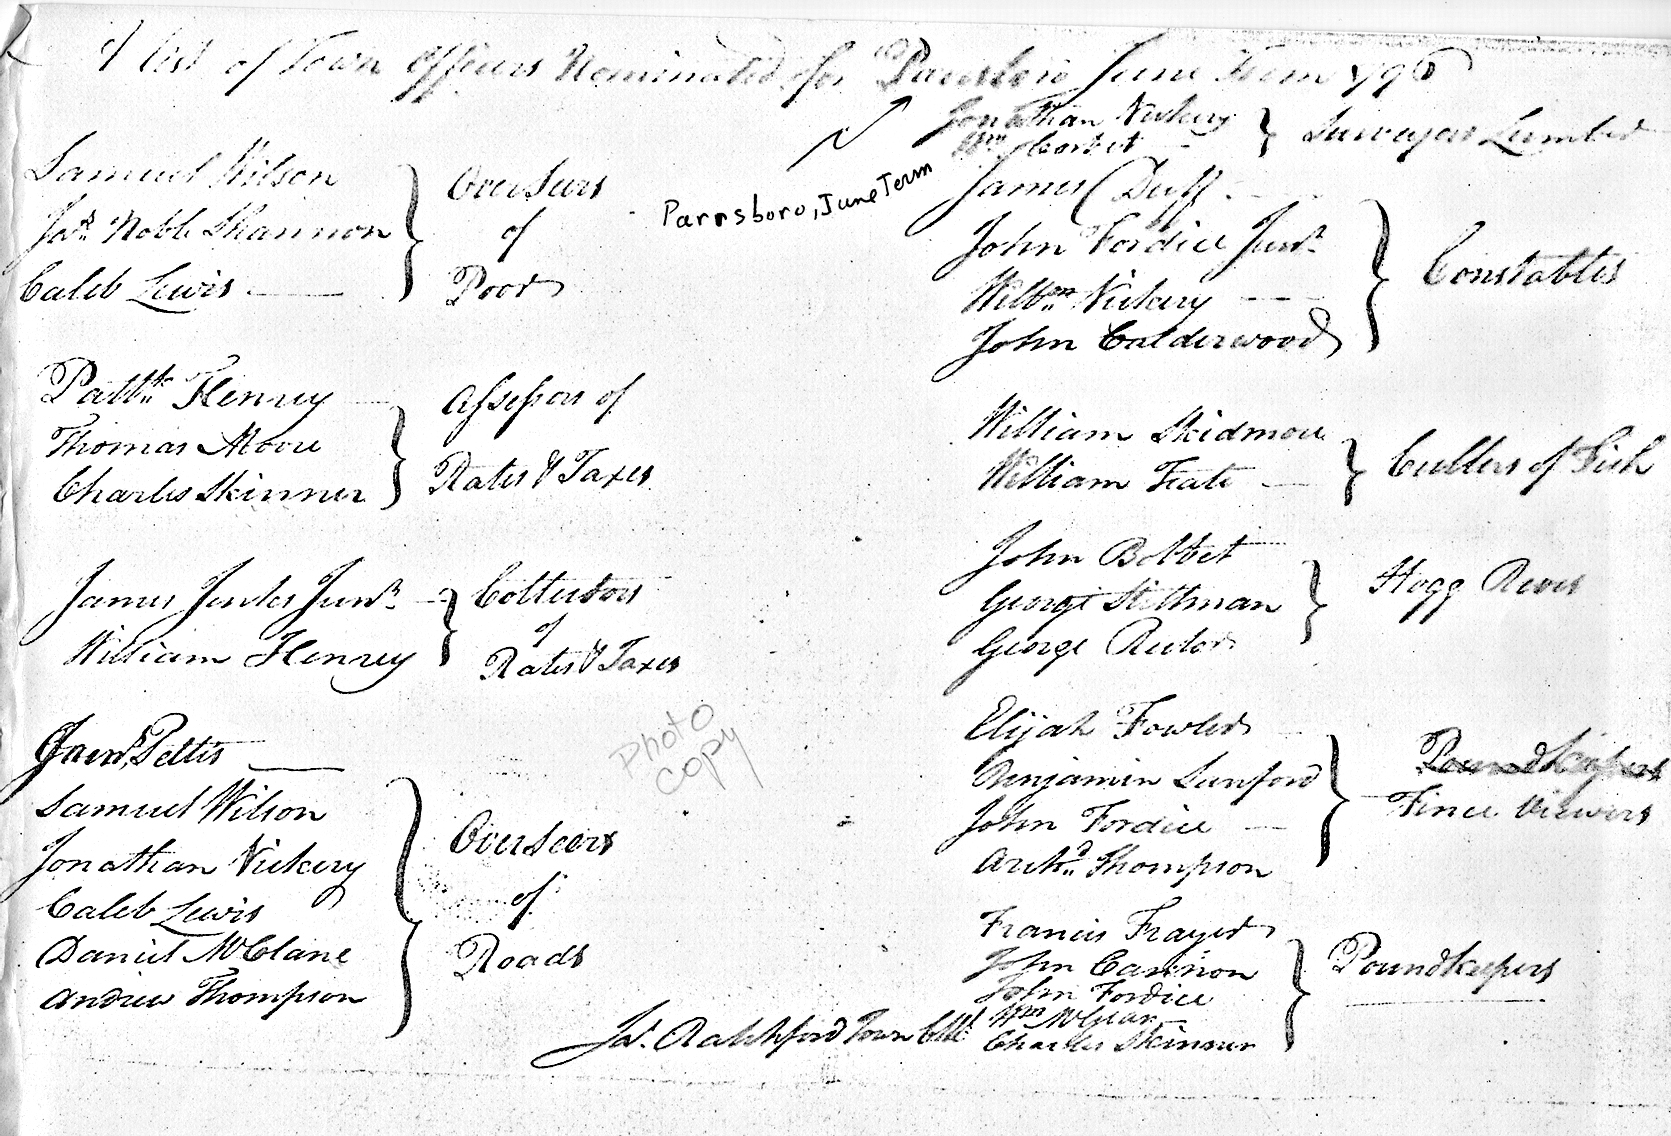 A list of Town Officers Nominated for Parrsboro June Term 1796
Parrsboro, June Term
Samuel Wilson
Jas. Noble Shannon
Caleb Lewis
Overseers
of
Poor
Patk. Henrey
Thomas Moore
Charles Skinner
Assessors of
Rates & Taxes
James Jenks Junr.
William Henrey
Collectors
of
Rates & Taxes
Pettis
Samuel Wilson
Jonathan Vickery
Caleb Lewis
Daniel McClane
Andrew Thompson
Overseers
of
Roads
Photo
copy
Jas. Ratchford Town Clk.
Jonathan Vickery
Wm. Corbet
Surveyors Lumber
James Duff
John Fordice Junr.
Vickery
John Calderwood
Constables
William Skidmore
William Teate
Cullers of Fish
John Bolbet
George Stillman
George
Hogg Reves
Elijah Fowler
Benjamin Lunford
John Fordice
Archd. Thompson
Poundkeepers
Fince Viewers
Francis Frayer
John Cannon
John Fordice
Wm
Charles Skinner
Poundkeepers